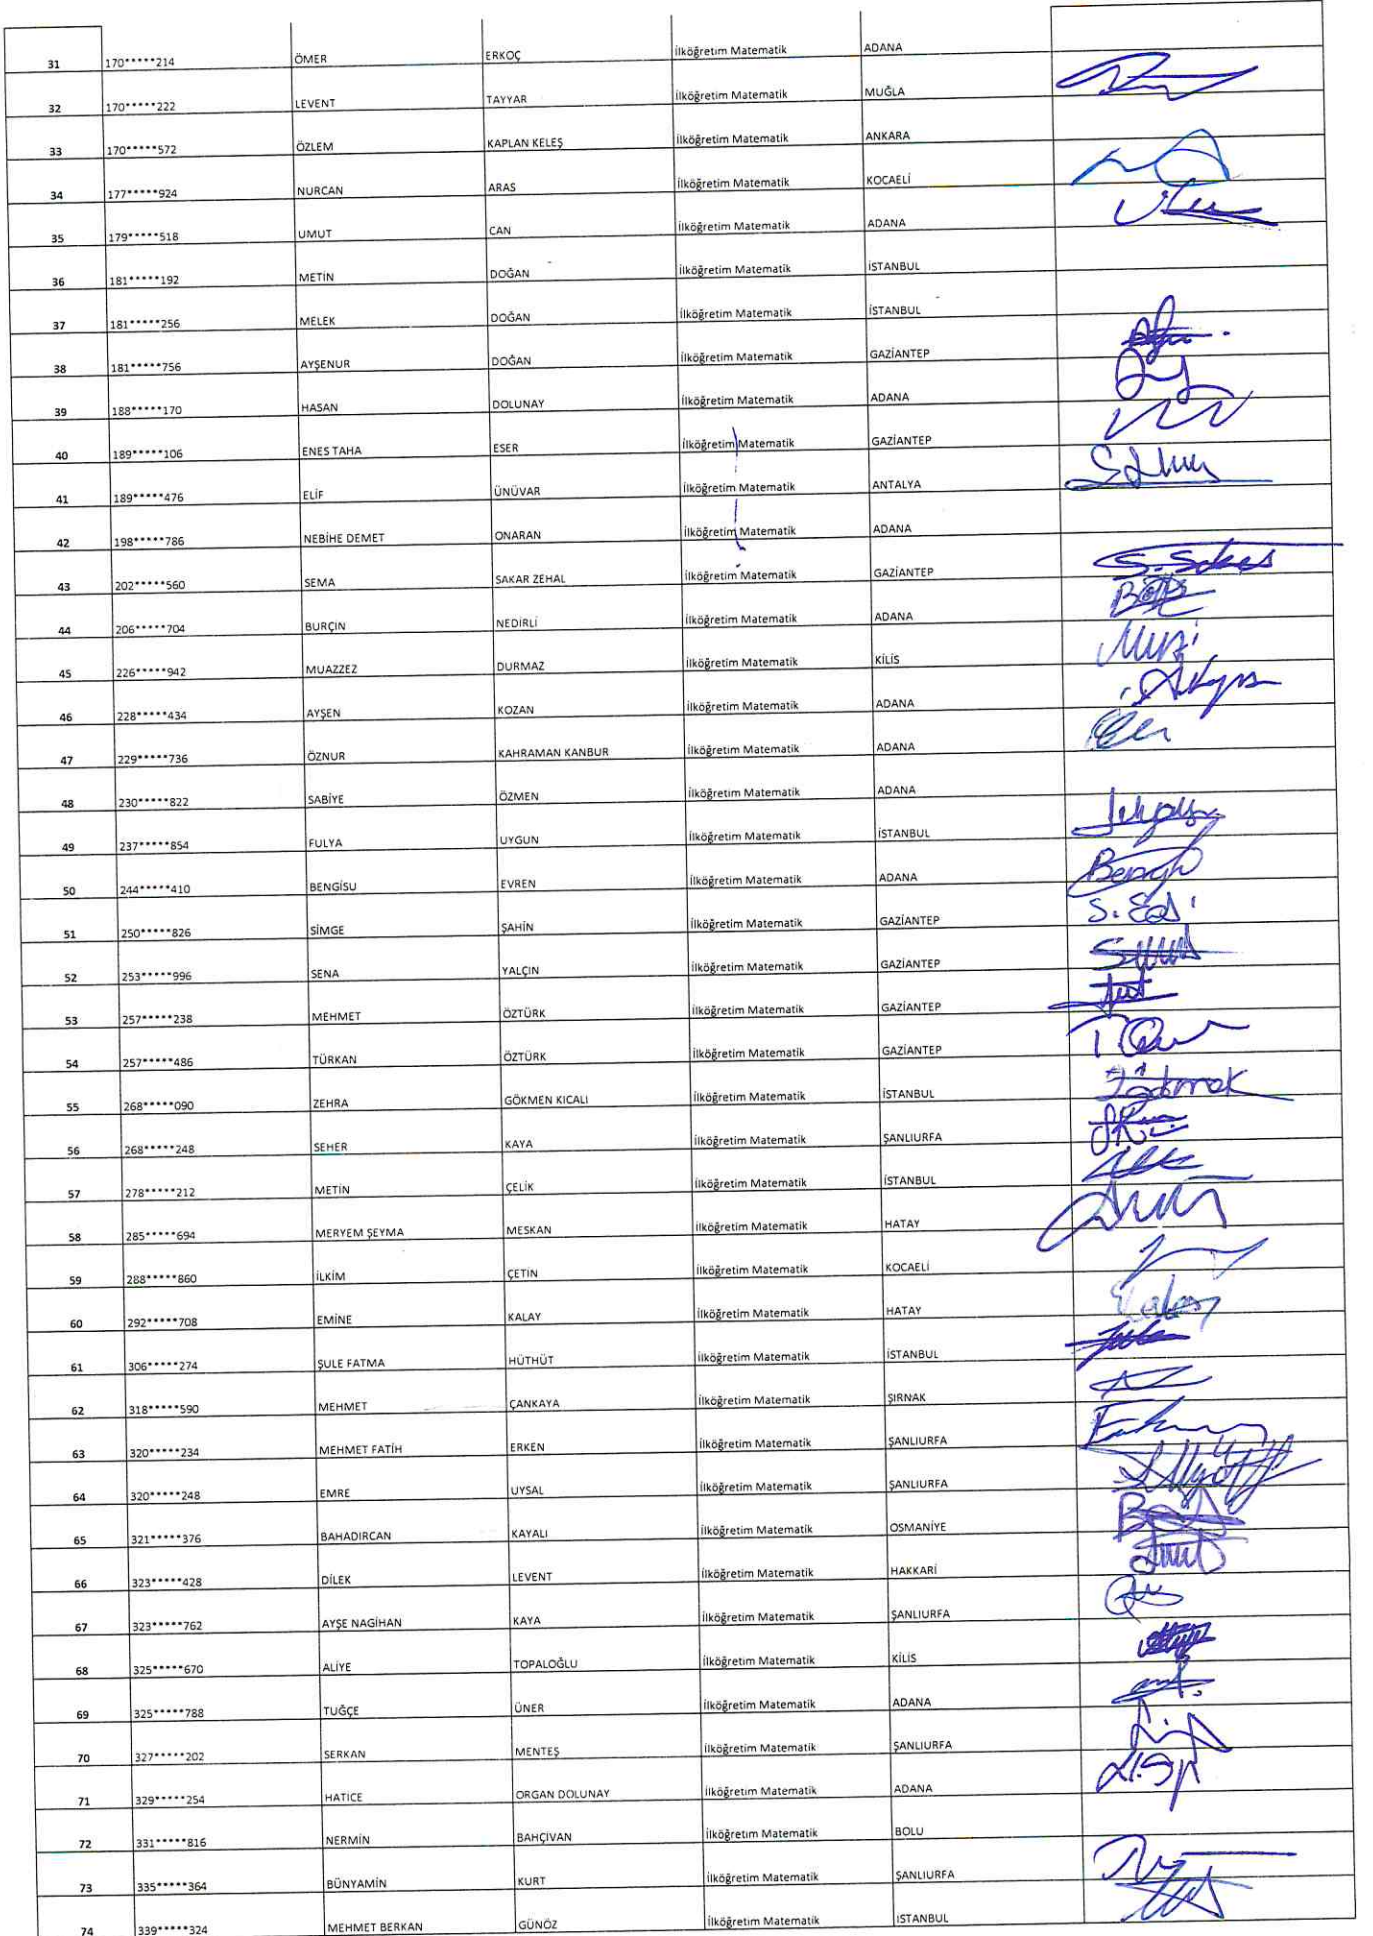 31 170*****214 ÖMER ERKOÇ İlköğretim Matematik ADANA
32 170*****222 LEVENT TAYYAR İlköğretim Matematik MUĞLA
33 170*****572 ÖZLEM KAPLAN KELEŞ İlköğretim Matematik ANKARA
34 177*****924 NURCAN ARAS İlköğretim Matematik KOCAELİ
35 179*****518 UMUT CAN İlköğretim Matematik ADANA
36 181*****192 METİN DOĞAN İlköğretim Matematik İSTANBUL
37 181*****256 MELEK DOĞAN İlköğretim Matematik İSTANBUL
38 181*****756 AYŞENUR DOĞAN İlköğretim Matematik GAZİANTEP
39 188*****170 HASAN DOLUNAY İlköğretim Matematik ADANA
40 189*****106 ENES TAHA ESER İlköğretim Matematik GAZİANTEP
41 189*****476 ELİF ÜNÜVAR İlköğretim Matematik ANTALYA
42 198*****786 NEBİHE DEMET ONARAN İlköğretim Matematik ADANA
43 202*****560 SEMA SAKAR ZEHAL İlköğretim Matematik GAZİANTEP
44 206*****704 BURÇIN NEDİRLİ İlköğretim Matematik ADANA
45 226*****942 MUAZZEZ DURMAZ İlköğretim Matematik KİLİS
46 228*****434 AYŞEN KOZAN İlköğretim Matematik ADANA
47 229*****736 ÖZNUR KAHRAMAN KANBUR İlköğretim Matematik ADANA
48 230*****822 SABİYE ÖZMEN İlköğretim Matematik ADANA
49 237*****854 FULYA UYGUN İlköğretim Matematik İSTANBUL
50 244*****410 BENGİSU EVREN İlköğretim Matematik ADANA
51 250*****826 SİMGE ŞAHİN İlköğretim Matematik GAZİANTEP
52 253*****996 SENA YALÇIN İlköğretim Matematik GAZİANTEP
53 257*****238 MEHMET ÖZTÜRK İlköğretim Matematik GAZİANTEP
54 257*****486 TÜRKAN ÖZTÜRK İlköğretim Matematik GAZİANTEP
55 268*****090 ZEHRA GÖKMEN KICALI İlköğretim Matematik İSTANBUL
56 268*****248 SEHER KAYA İlköğretim Matematik ŞANLIURFA
57 278*****212 METİN ÇELİK İlköğretim Matematik İSTANBUL
58 285*****694 MERYEM ŞEYMA MESKAN İlköğretim Matematik HATAY
59 288*****860 İLKİM ÇETİN İlköğretim Matematik KOCAELİ
60 292*****708 EMİNE KALAY İlköğretim Matematik HATAY
61 306*****274 ŞULE FATMA HÜTHÜT İlköğretim Matematik İSTANBUL
62 318*****590 MEHMET ÇANKAYA İlköğretim Matematik ŞIRNAK
63 320*****234 MEHMET FATİH ERKEN İlköğretim Matematik ŞANLIURFA
64 320*****248 EMRE UYSAL İlköğretim Matematik ŞANLIURFA
65 321*****376 BAHADIRCAN KAYALI İlköğretim Matematik OSMANİYE
66 323*****428 DİLEK LEVENT İlköğretim Matematik HAKKARİ
67 323*****762 AYŞE NAGİHAN KAYA İlköğretim Matematik ŞANLIURFA
68 325*****670 ALİYE TOPALOĞLU İlköğretim Matematik KİLİS
69 325*****788 TUĞÇE ÜNER İlköğretim Matematik ADANA
70 327*****202 SERKAN MENTEŞ İlköğretim Matematik ŞANLIURFA
71 329*****254 HATİCE ORGAN DOLUNAY İlköğretim Matematik ADANA
72 331*****816 NERMİN BAHÇIVAN İlköğretim Matematik BOLU
73 335*****364 BÜNYAMİN KURT İlköğretim Matematik ŞANLIURFA
74 339*****324 MEHMET BERKAN GÜNÖZ İlköğretim Matematik İSTANBUL